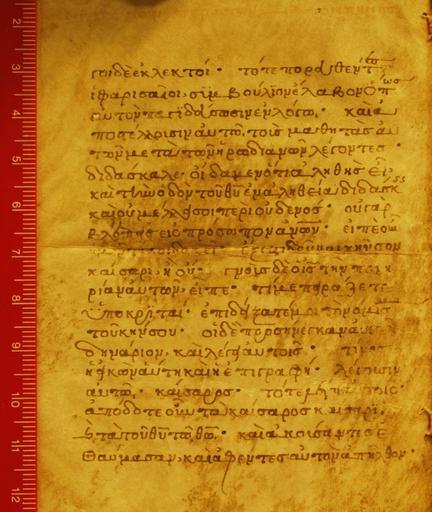 γοι δὲ ἐκλεκτοί · τότε πορευθέντες
οἱ φαρισαῖοι, συμβούλιον ἔλαβον ὅπως
αὐτὸν παγιδεύσωσιν ἐν λόγω · καὶ ἀ
ποστέλλουσιν αὐτῶ, τοὺς μαθητὰς αὐ
τῶν μετὰ τῶν ἡρωδιανῶν λέγοντες ·
διδάσκαλε, οἴδαμεν ὅτι ἀληθὴς εἶ,
καὶ τὴν ὁδὸν τοῦ θυ ἐν ἀληθεία διδάσκεις
καὶ οὐ μέλλει σοι περὶ οὐδενὸς · οὐ γὰρ
βλέπεις εἰς πρόσωπον ανων · εἰπὲ οὖν
ἔξεστι δοῦναι κῆνσον
καίσαρι, ἢ οὔ · γνοὺς δὲ ὁ ις τὴν πονη
ρίαν αὐτῶν εἶπε · τί με πειράζετε
ὑποκριταί · ἐπιδείξατέ μοι τὸ νόμισμα
τοῦ κήνσου · οἱ δὲ προσήνεγκαν αὐτῶ
δηνάριον, καὶ λέγει αὐτοῖς · τίνος
ἡ εἰκὼν αὕτη καὶ ἡ ἐπιγραφή · λέγουσιν
αὐτῶ, καίσαρος · τότε λέγει αὐτοῖς
ἀπόδοτε οὖν τὰ καίσαρος καίσαρι,
καὶ τὰ τοῦ θυ τῶ θω · καὶ ἀκούσαντες ἐ
θαύμασαν, καὶ ἀφέντες αὐτὸν ἀπῆλθον ·